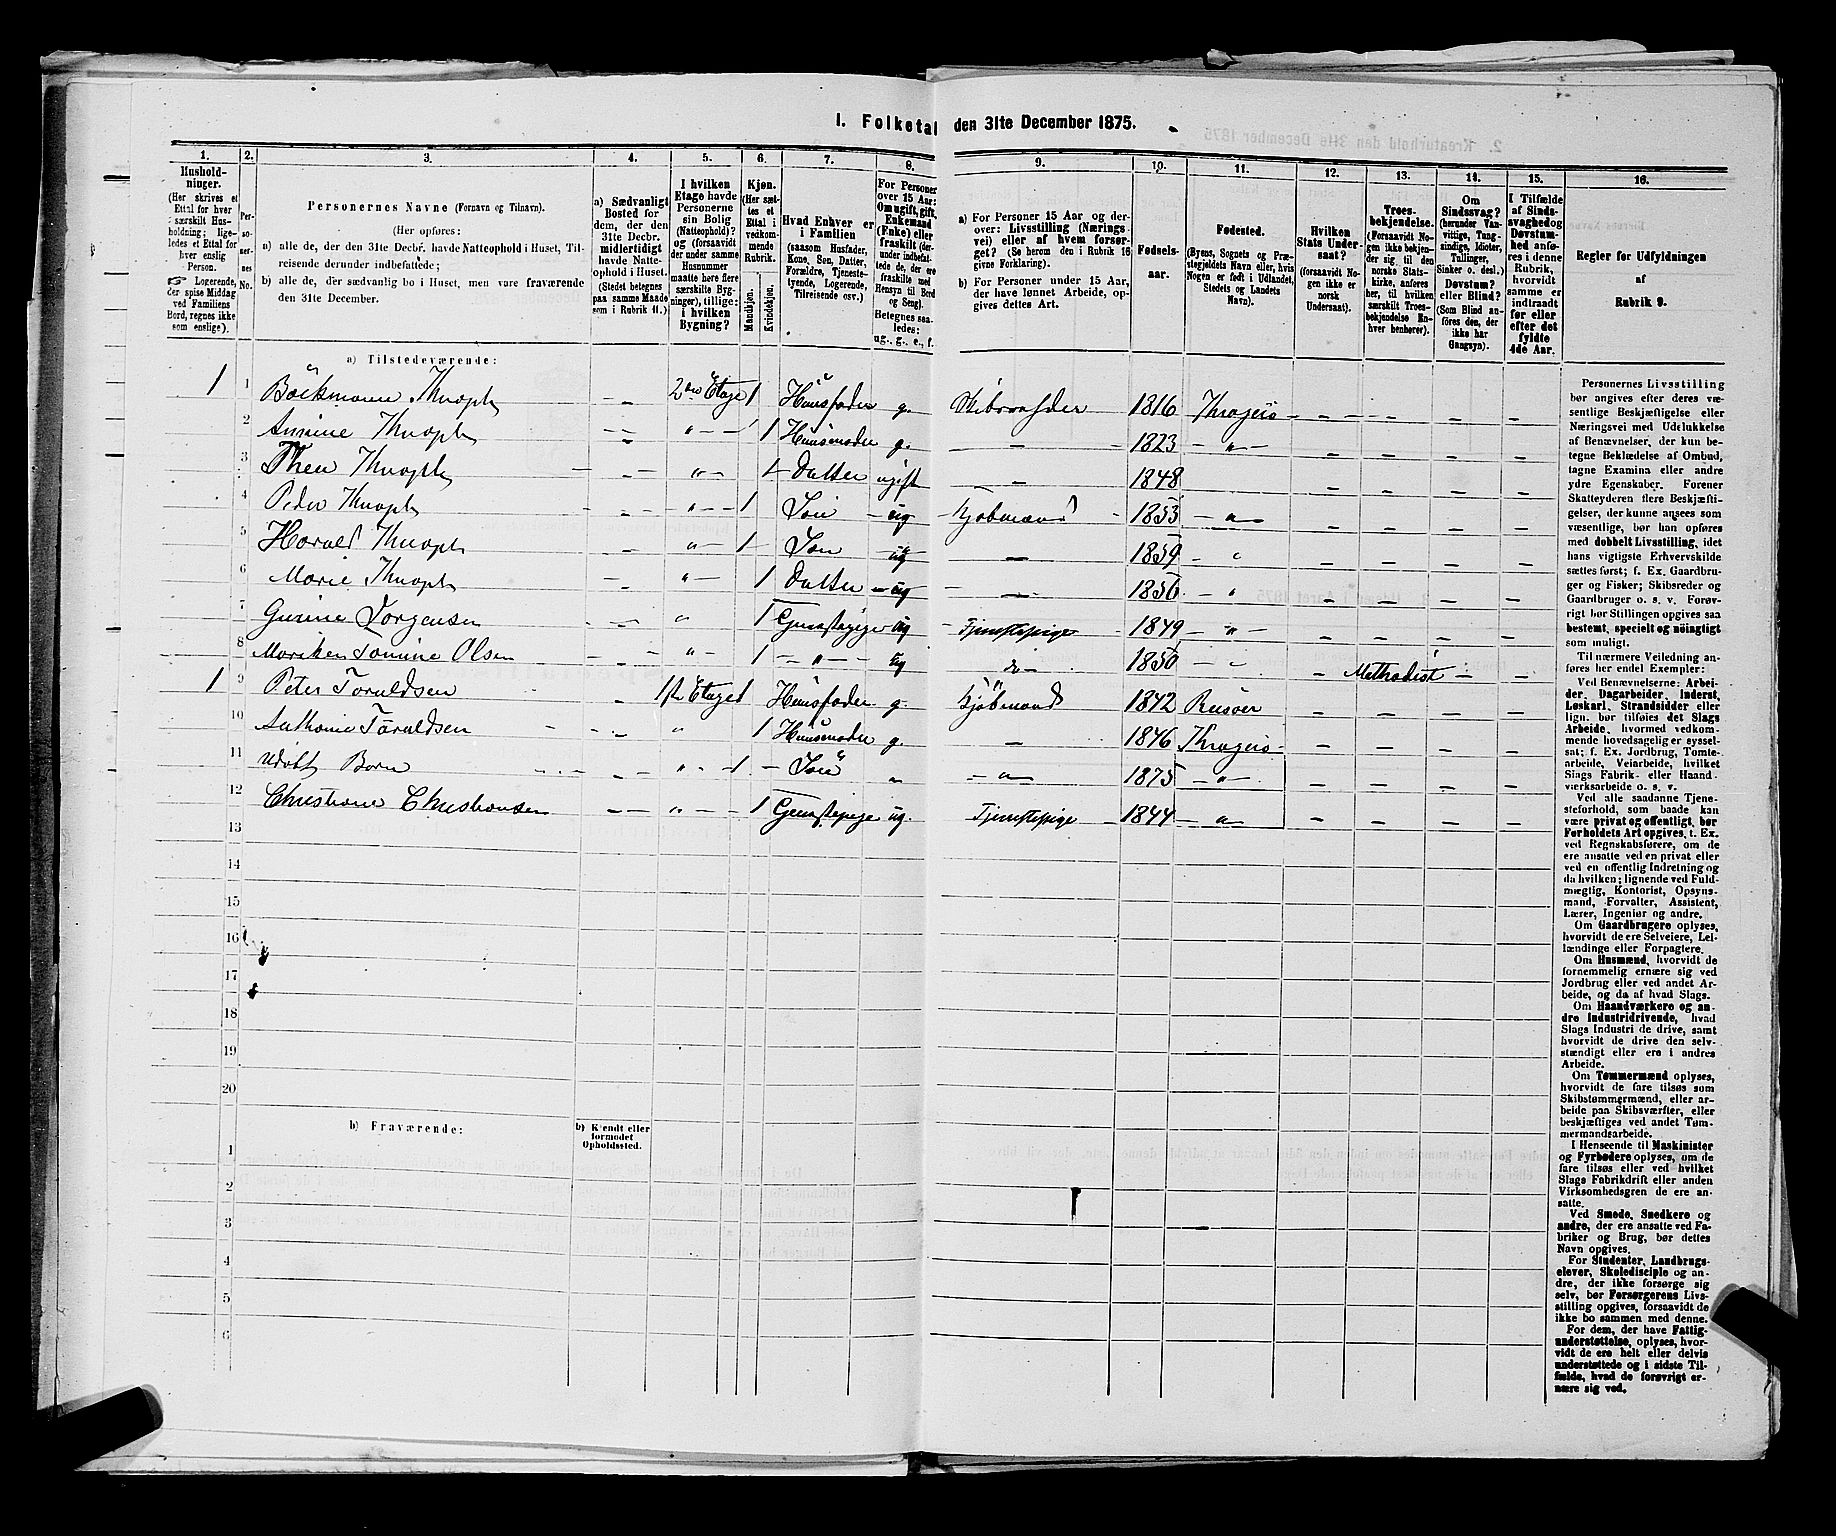 I. Folketal den 31te December 1875.
1. 2. 3. 4. 5. 6. 7. 8. 9. 10. 11. 12. 13. 14. 15. 16.
Husholdninger.
(Her skrives et Ettal for hver særskilt Husholdning; ligeledes et Ettal for hver enslig Person.
Logerende, der spise Middag ved Familiens Bord, regnes ikke som enslige).
Personernes No.
Personernes Navne (Fornavn og Tilnavn).
(Her opføres:
a) alle de, der den 31te Decbr. havde Natteophold i Huset, Tilreisende derunder indbefattede;
b) alle de, der sædvanlig bo i Huset, men vare fraværende den 31te December.
a) Sædvanligt Bosted for dem, der den 31te Decbr. midlertidigt havde Natteophold i Huset.
(Stedet betegnes paa samme Maade som i Rubrik 11.)
I hvilken Etage havde Personerne sin Bolig (Natteophold)? og (forsaavidt der under samme Husnummer maatte høre flere særskilte Bygninger), tillige: i hvilken Bygning?
Kjøn. (Her sættes et Ettal i vedkommende Rubrik.
Mandkjøn.
Kvindekjøn.
Hvad Enhver er i Familien
(saasom Husfader, Kone, Søn, Datter, Forældre, Tjenestetyende, Logerende, Tilreisende osv.)
For Personer over 15 Aar: Om ugift, gift, Enkemand (Enke) eller fraskilt (derunder indbefattede de, der ere fraskilte med Hensyn til Bord og Seng).
Betegnes saaledes: ug., g., e., f.
a) For Personer 15 Aar og derover: Livsstilling (Næringsvei) eller af hvem forsørget? (Se herom den i Rubrik 16 givne Forklaring).
b) For Personer under 15 Aar, der have lønnet Arbeide, opgives dettes Art.
Fødselsaar.
Fødested.
(Byens, Sognets og Præstegjeldets Navn eller, hvis Nogen er født i Udlandet, Stedets og Landets Navn).
Hvilken Stats Undersaat?
(forsaavidt Nogen ikke er norsk Undersaat).
Troesbekjendelse.
(Forsaavidt Nogen ikke bekjender sig til den norske Statskirke, anføres her, til hvilken særskilt Troesbekjendelse Enhver henhører).
Om Sindssvag? (herunder Vanvittige, Tungsindige, Idioter, Tullinger, Sinker o. desl.) Døvstum? eller Blind? (Som Blind anføres den, der ikke har Gangsyn).
I Tilfælde af Sindssvaghed og Døvstumhed anføres i denne Rubrik, hvorvidt samme er indtraadt før eller efter det fyldte 4de Aar.
Regler for Udfyldningen af Rubrik 9.
a) Tilstedeværende:
1 1 Böckmann Thvopl – – 2den Etage 1 Huusfader g. Skibsreder 1816 Kragerö – – – – –
2 Annine – – " – 1 Huusmoder g. – 1823 – " – – – – –
3 Thea – – " – 1 Datter ugift – 1848 – – – –
4 Peder – – " – 1 Sön – ug Kjøbmand – 1853 – " – – – – –
5 Harald – – " – 1 Sön – ug – 1859 – " – – – –
6 Marie – – " – 1 Datter – ug – 1856 – " – – – –
7 Gunine Jörgensen " 1 ug Tjenestepige 1849 – " – – – – –
8 Mariken Tomine Olsen " – 1 – " – ug do – 1850 – " – Methodist – –
1 9 Peter Toraldsen – 1ste Etage 1 Huusfader g. Kjöbmand 1842 Risöer – – – –
10 Anthonie Toraldsen – – " 1 Huusmoder g. – 1846 Kragerö – – – – –
11 Udöbt Barn – " – 1 – Sön " – " – 1875 – " – – – – –
12 Christiane Christiansen – – " – 1 ug. Tjenestepige – 1844 – " – – – – –
13
14
15
16
17
18
19
20
b) Fraværende:
b) Kjendt eller formodet Opholdssted.
1
2
3
4
5
6
Personernes Livsstilling bør angives efter deres væsentlige Beskjæftigelse eller Næringsvei med Udelukkelse af Benævnelser, der kun betegne Beklædelse af Ombud, tagne Examina eller andre ydre Egenskaber. Forener Skatteyderen flere Beskjæftigelser, der kunne ansees som væsentlige, bør han opføres med dobbelt Livsstilling, idet hans vigtigste Erhvervskilde sættes først; f. Ex. Gaardbruger og Fisker; Skibsreder og Gaardbruger o. s. v. Forøvrigt bør Stillingen opgives saa bestemt, specielt og nöingtigt som muligt.
Til nærmere Veiledning anføres her endel Exempler:
Ved Benævnelserne: Arbeider, Dagarbeider, Inderst, Løskarl, Strandsidder eller lign. bør tilføies det Slags Arbeide, hvormed vedkommende hovedsagelig er sysselsat; f. Ex. Jordbrug, Tomtearbeide, Veiarbeide, hvilket Slags Fabrik- eller Haandværksarbeide o. s. v.
Ved alle saadanne Tjenesteforhold, som baade kan være privat og offentligt, bør Forholdets Art opgives, t. Ex. ved Regnskabsførere, om de ere ansatte ved en privat eller ved en offentlig Indretning og da hvilken; lignende ved Fuldmægtig, Kontorist, Opsynsmand, Forvalter, Assistent, Lærer, Ingeniør og andre.
Om Gaardbrugere oplyses, hvorvidt de ere Selveiere, Leilændinge eller Forpagtere.
Om Husmænd, hvorvidt de fornemmelig ernære sig ved Jordbrug eller ved andet Arbeide, og da af hvad Slags.
Om Haandværkere og andre Industridrivende, hvad Slags Industri de drive, samt hvorvidt de drive den selvstændigt eller ere i andres Arbeide.
Om Tømmermænd oplyses, hvorvidt de fare tilsøs som Skibstømmermænd, eller arbeide paa Skibsværfter, eller beskjæftiges ved andet Tømmermandsarbeide.
I Henseende til Maskinister og Fyrbødere oplyses, om de fare tilsøs eller ved hvilket Slags Fabrikdrift eller anden Virksomhedsgren de ere ansatte.
Ved Smede, Snedkere og andre, der ere ansatte ved Fabriker og Brug, bør dettes Navn opgives.
For Studenter, Landbrugselever, Skoledisciple og andre, der ikke forsørge sig selv, bør Forsørgerens Livsstilling opgives, forsaavidt de ikke bo sammen med denne.
For dem, der have Fattigunderstøttelse, oplyses, hvorvidt de ere helt eller delvis understøttede og i sidste Tilfælde, hvad de forøvrigt ernære sig ved.